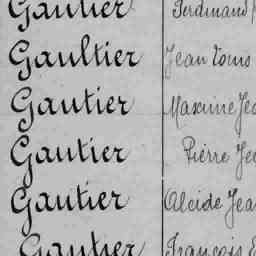 Gautier Ferdinand
Gaultier Jean Louis
Gautier Maxime
Gautier Pierre
Gautier Alcide
Gautier François